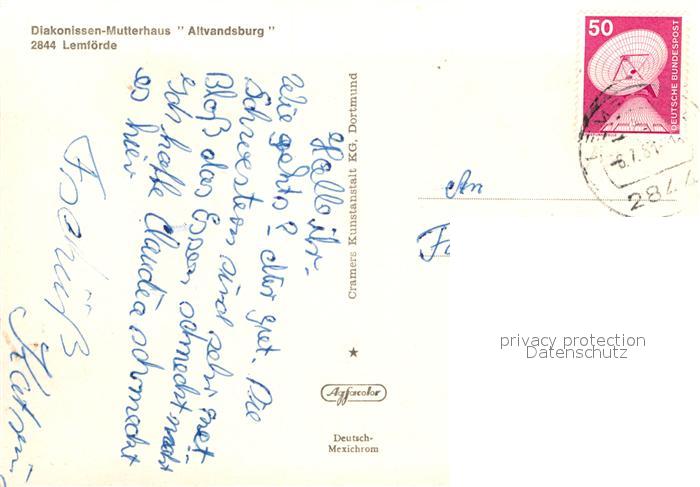 Diakonissen-Mutterhaus " Altvandsburg "
2844 Lemförde
Hallo ihr.
Wie gehts? Mir gut. Die
Schwestern sind sehr nett
Bloß das Essen schmeckt nicht
Ich hoffe Claudia schmeckt
es hier
Tschüß
Cramers Kunstanstalt KG, Dortmund
Agfacolor
Deutsch-
Mexichrom
50
DEUTSCHE BUNDESPOST
2844
An
privacy protection
Datenschutz